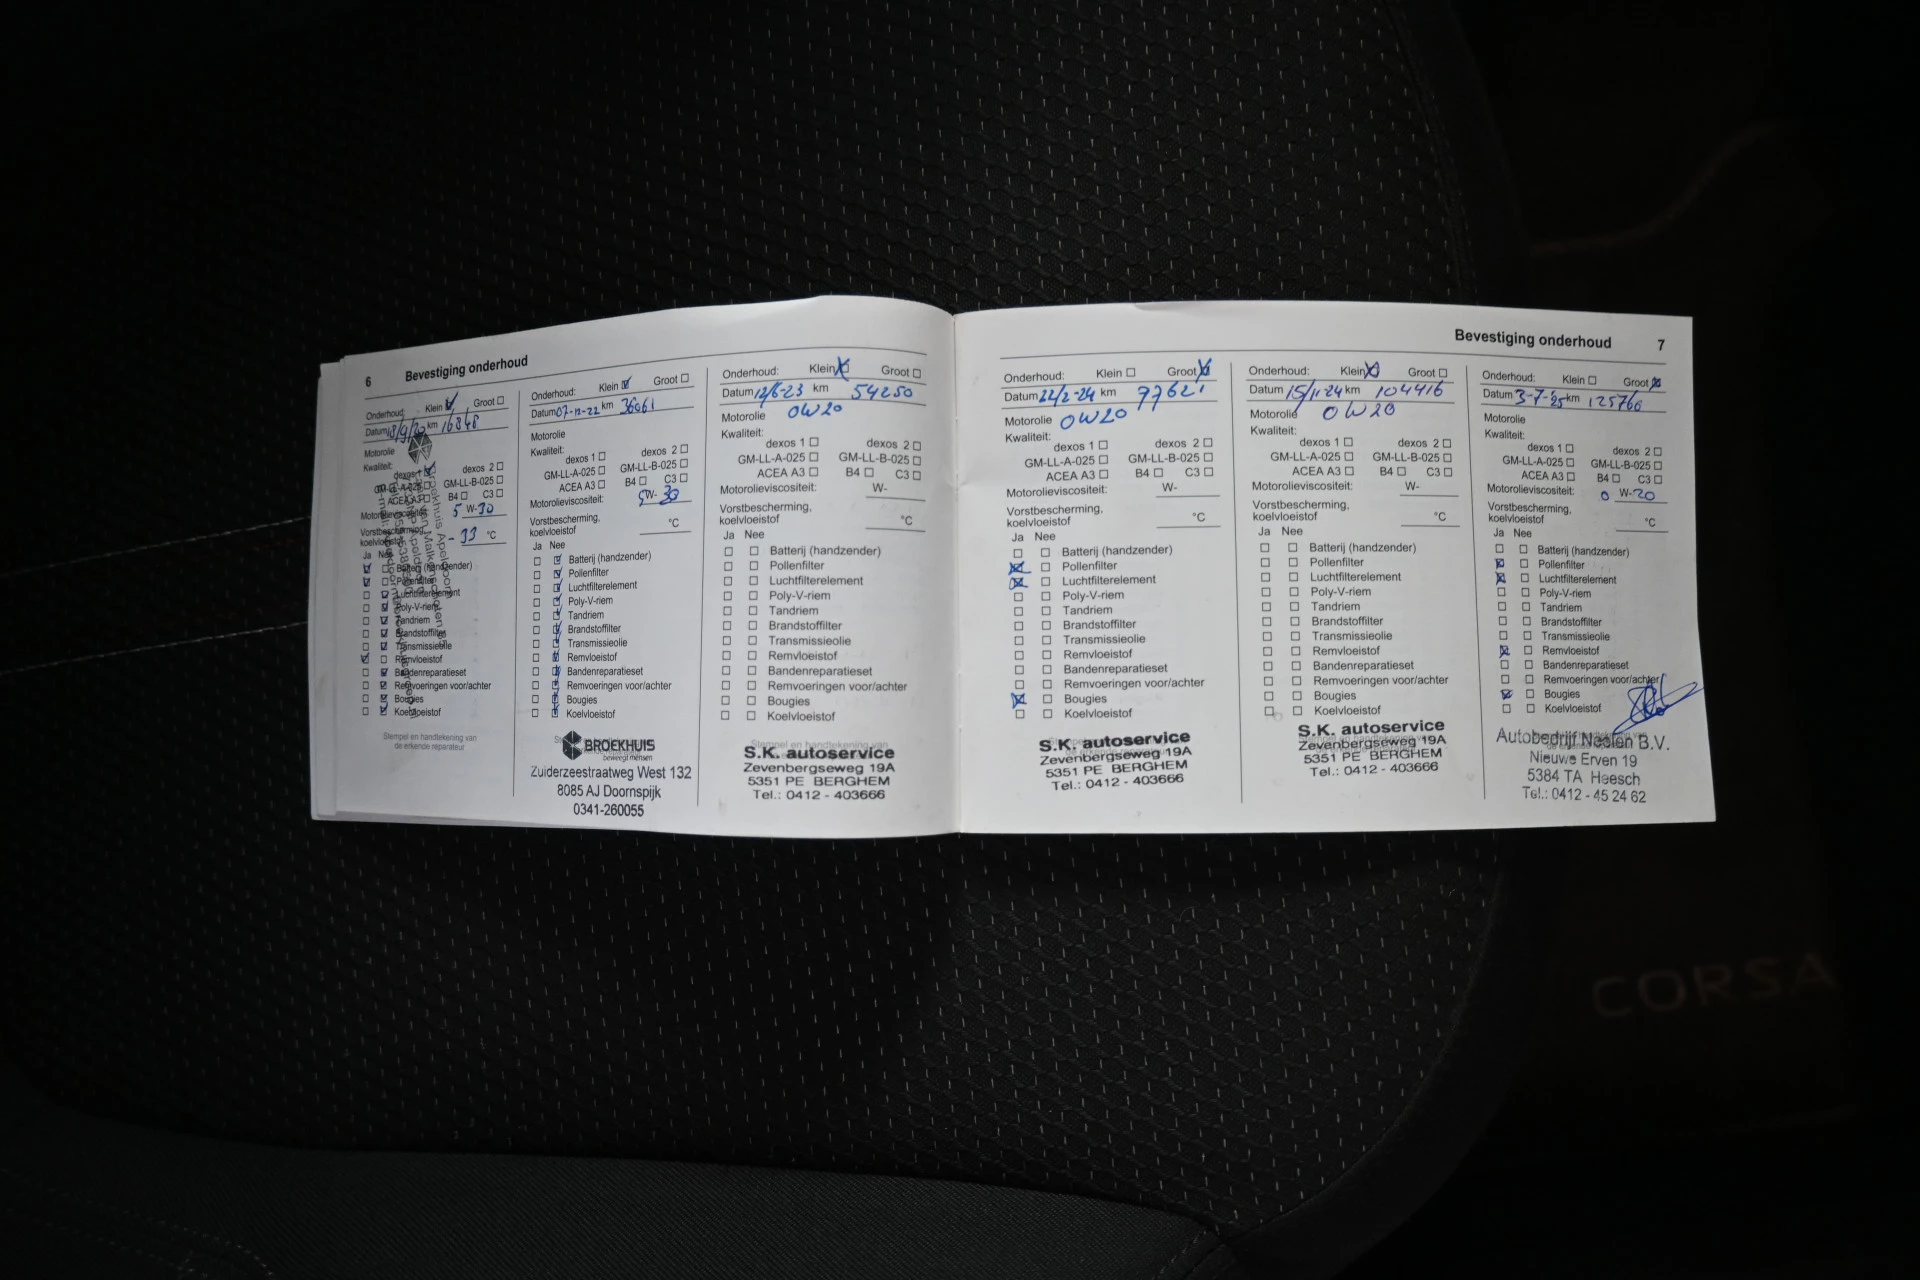 6 Bevestiging onderhoud
Onderhoud: Klein Groot
Datum 18/9/20 km 16848
Motorolie
Kwaliteit:
dexos 1 dexos 2
GM-LL-A-025 GM-LL-B-025
ACEA A3 B4 C3
Motorolieviscositeit 5 W-30
Vorstbescherming,
koelvloeistof -33 °C
Ja Nee
Batterij (handzender)
Pollenfilter
Luchtfilterelement
Poly-V-riem
Tandriem
Brandstoffilter
Transmissieolie
Remvloeistof
Bandenreparatieset
Remvoeringen voor/achter
Bougies
Koelvloeistof
Stempel en handtekening van
de erkende reparateur
Onderhoud: Klein Groot
Datum 07-12-22 km 36061
Motorolie
Kwaliteit:
dexos 1 dexos 2
GM-LL-A-025 GM-LL-B-025
ACEA A3 B4 C3
Motorolieviscositeit: 5 W-30
Vorstbescherming,
koelvloeistof °C
Ja Nee
Batterij (handzender)
Pollenfilter
Luchtfilterelement
Poly-V-riem
Tandriem
Brandstoffilter
Transmissieolie
Remvloeistof
Bandenreparatieset
Remvoeringen voor/achter
Bougies
Koelvloeistof
BROEKHUIS
beweegt mensen
Zuiderzeestraatweg West 132
8085 AJ Doornspijk
0341-260055
Onderhoud: Klein Groot
Datum 12/6-23 km 54250
Motorolie 0W20
Kwaliteit:
dexos 1 dexos 2
GM-LL-A-025 GM-LL-B-025
ACEA A3 B4 C3
Motorolieviscositeit: W-
Vorstbescherming,
koelvloeistof °C
Ja Nee
Batterij (handzender)
Pollenfilter
Luchtfilterelement
Poly-V-riem
Tandriem
Brandstoffilter
Transmissieolie
Remvloeistof
Bandenreparatieset
Remvoeringen voor/achter
Bougies
Koelvloeistof
Stempel en handtekening van
S.K. autoservice
Zevenbergseweg 19A
5351 PE BERGHEM
Tel.: 0412 - 403666
Bevestiging onderhoud 7
Onderhoud: Klein Groot
Datum 22/2-24 km 77621
Motorolie 0W20
Kwaliteit:
dexos 1 dexos 2
GM-LL-A-025 GM-LL-B-025
ACEA A3 B4 C3
Motorolieviscositeit: W-
Vorstbescherming,
koelvloeistof °C
Ja Nee
Batterij (handzender)
Pollenfilter
Luchtfilterelement
Poly-V-riem
Tandriem
Brandstoffilter
Transmissieolie
Remvloeistof
Bandenreparatieset
Remvoeringen voor/achter
Bougies
Koelvloeistof
S.K. autoservice
Zevenbergseweg 19A
5351 PE BERGHEM
Tel.: 0412 - 403666
Onderhoud: Klein Groot
Datum 15/11-24 km 104416
Motorolie 0W20
Kwaliteit:
dexos 1 dexos 2
GM-LL-A-025 GM-LL-B-025
ACEA A3 B4 C3
Motorolieviscositeit: W-
Vorstbescherming,
koelvloeistof °C
Ja Nee
Batterij (handzender)
Pollenfilter
Luchtfilterelement
Poly-V-riem
Tandriem
Brandstoffilter
Transmissieolie
Remvloeistof
Bandenreparatieset
Remvoeringen voor/achter
Bougies
Koelvloeistof
S.K. autoservice
Zevenbergseweg 19A
5351 PE BERGHEM
Tel.: 0412 - 403666
Onderhoud: Klein Groot
Datum 3-7-'25 km 125766
Motorolie
Kwaliteit:
dexos 1 dexos 2
GM-LL-A-025 GM-LL-B-025
ACEA A3 B4 C3
Motorolieviscositeit: 0 W-20
Vorstbescherming,
koelvloeistof °C
Ja Nee
Batterij (handzender)
Pollenfilter
Luchtfilterelement
Poly-V-riem
Tandriem
Brandstoffilter
Transmissieolie
Remvloeistof
Bandenreparatieset
Remvoeringen voor/achter
Bougies
Koelvloeistof
Autobedrijf Neelen B.V.
Nieuwe Erven 19
5384 TA Heesch
Tel.: 0412 - 45 24 62
CORSA